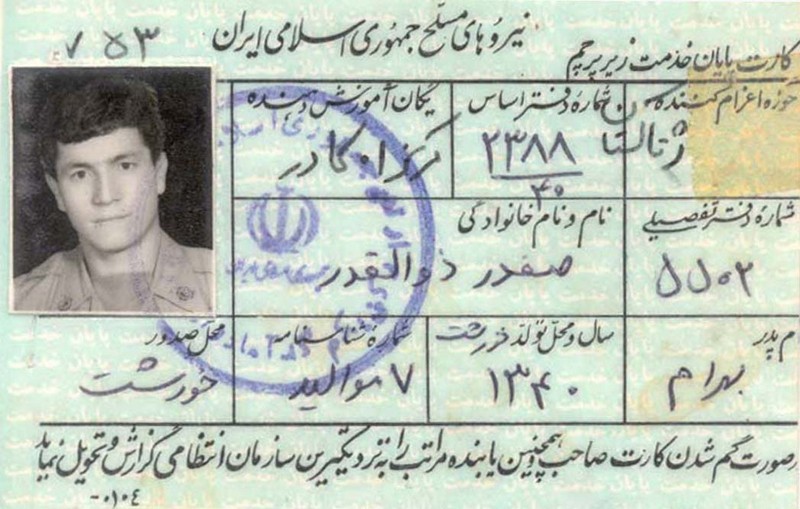 نیروهای مسلّح جمهوری اسلامی ایران
۷۵۳
کارت پایان خدمت زیر پرچم
حوزه اعزام کننده
شمارهٔ دفتر اساس
یگان آموزش دهنده
۲۳۸۸
۴۰
شمارهٔ دفتر تفصیلی
نام و نام خانوادگی
صفدر ذوالقدر
۵۵۰۲
م پدر
سال و محل تولد
شمارهٔ شناسنامه
محل صدور
بهرام
۱۳۴۰
۷ موالید
رصورت گم شدن کارت صاحب و همچنین یابنده مراتب را به نزدیکترین سازمان انتظامی گزارش و تحویل نماید
۰۱۰۴-